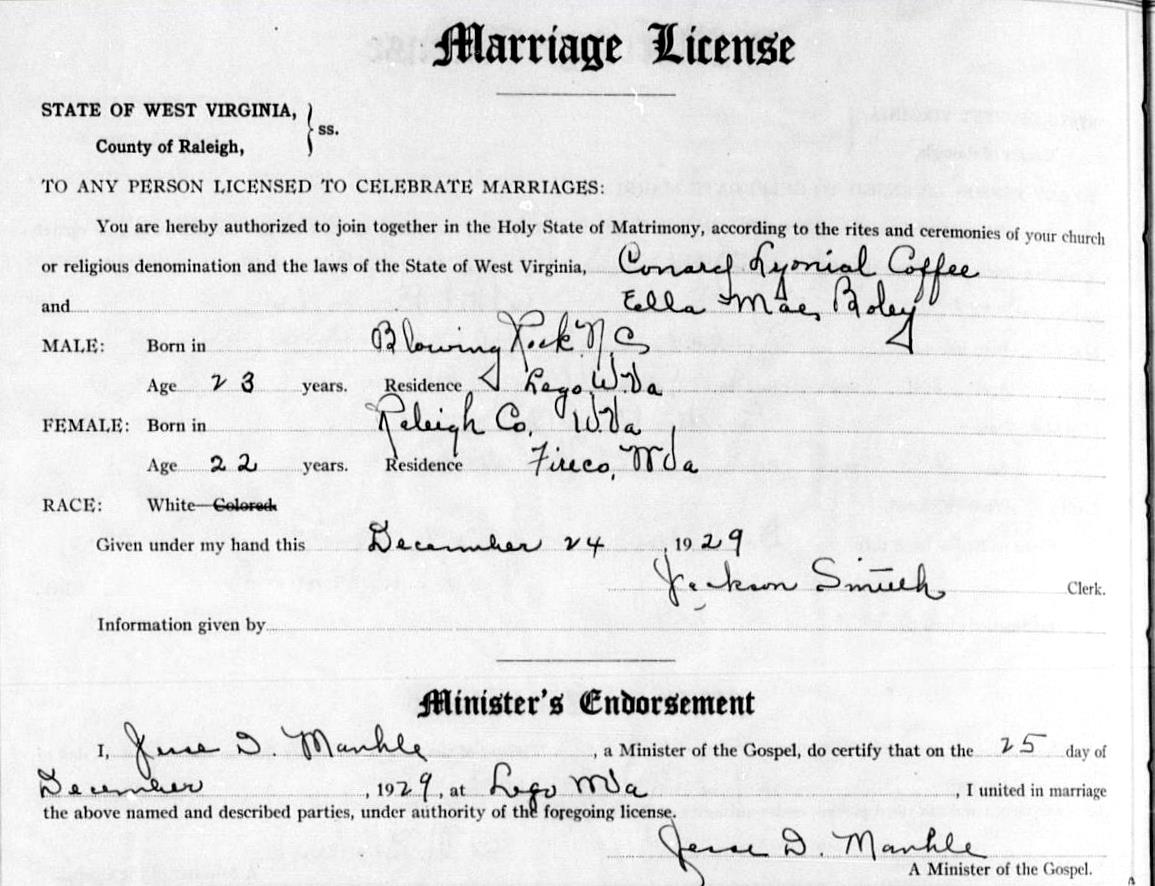 Marriage License
STATE OF WEST VIRGINIA,
County of Raleigh, } ss.
TO ANY PERSON LICENSED TO CELEBRATE MARRIAGES:
You are hereby authorized to join together in the Holy State of Matrimony, according to the rites and ceremonies of your church
or religious denomination and the laws of the State of West Virginia, Conard Lyonial Coffee
and Ella Mae Boley
MALE: Born in Blowing Rock N.C
Age 23 years. Residence Lego W.Va
FEMALE: Born in Raleigh Co, W.Va
Age 22 years. Residence Fireco, W Va
RACE: White—Colored
Given under my hand this December 24, 1929
Jackson Smith Clerk.
Information given by
Minister's Endorsement
I, Jesse D. , a Minister of the Gospel, do certify that on the 25 day of
December, 1929, at Lego W Va, I united in marriage
the above named and described parties, under authority of the foregoing license.
Jesse D.
A Minister of the Gospel.